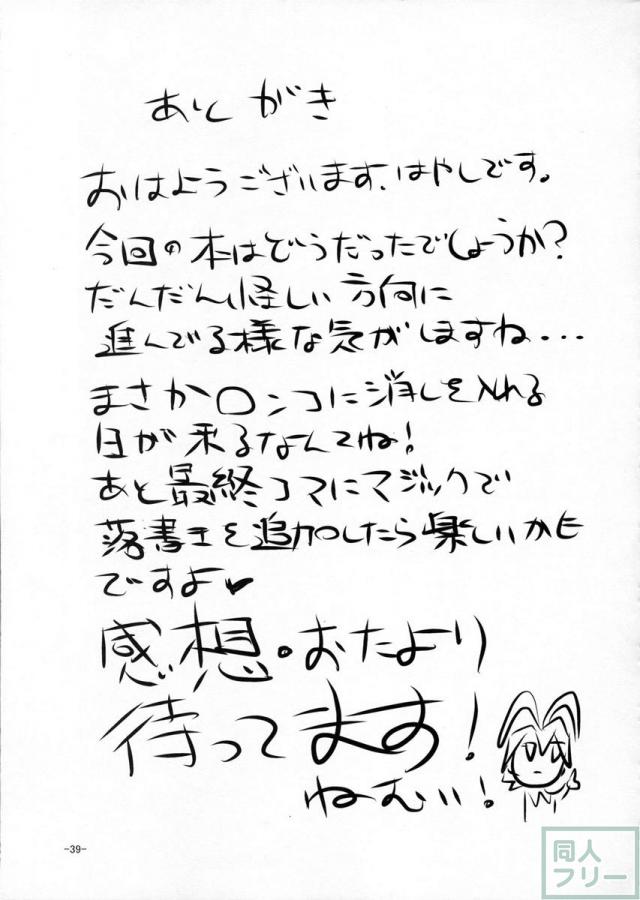 あとがき
おはようございます、はやしです。
今回の本はどうだったでしょうか?
だんだん怪しい方向に
進んでる様な気がしますね・・・
まさかロンコに消しを入れる
日が来るなんてね!
あと最終コマにマジックで
落書きを追加したら楽しいかも
ですよ♥
感想・おたより
待ってます!
ねむい!
-39-
同人
フリー